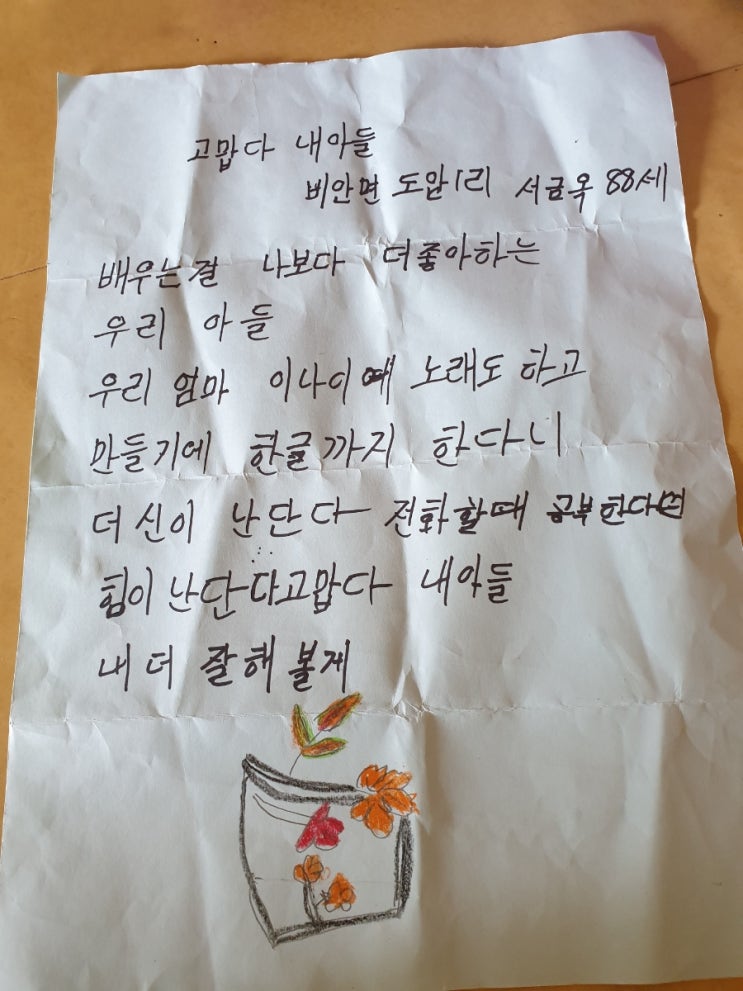 고맙다 내아들
비안면 도암1리 서금옥 88세
배우는걸 나보다 더좋아하는
우리 아들
우리 엄마 이나이때 노래도 하고
만들기에 한글까지 한다니
더 신이 난단다 전화할때 공부한다면
힘이 난단다고맙다 내아들
내 더 잘해 볼게